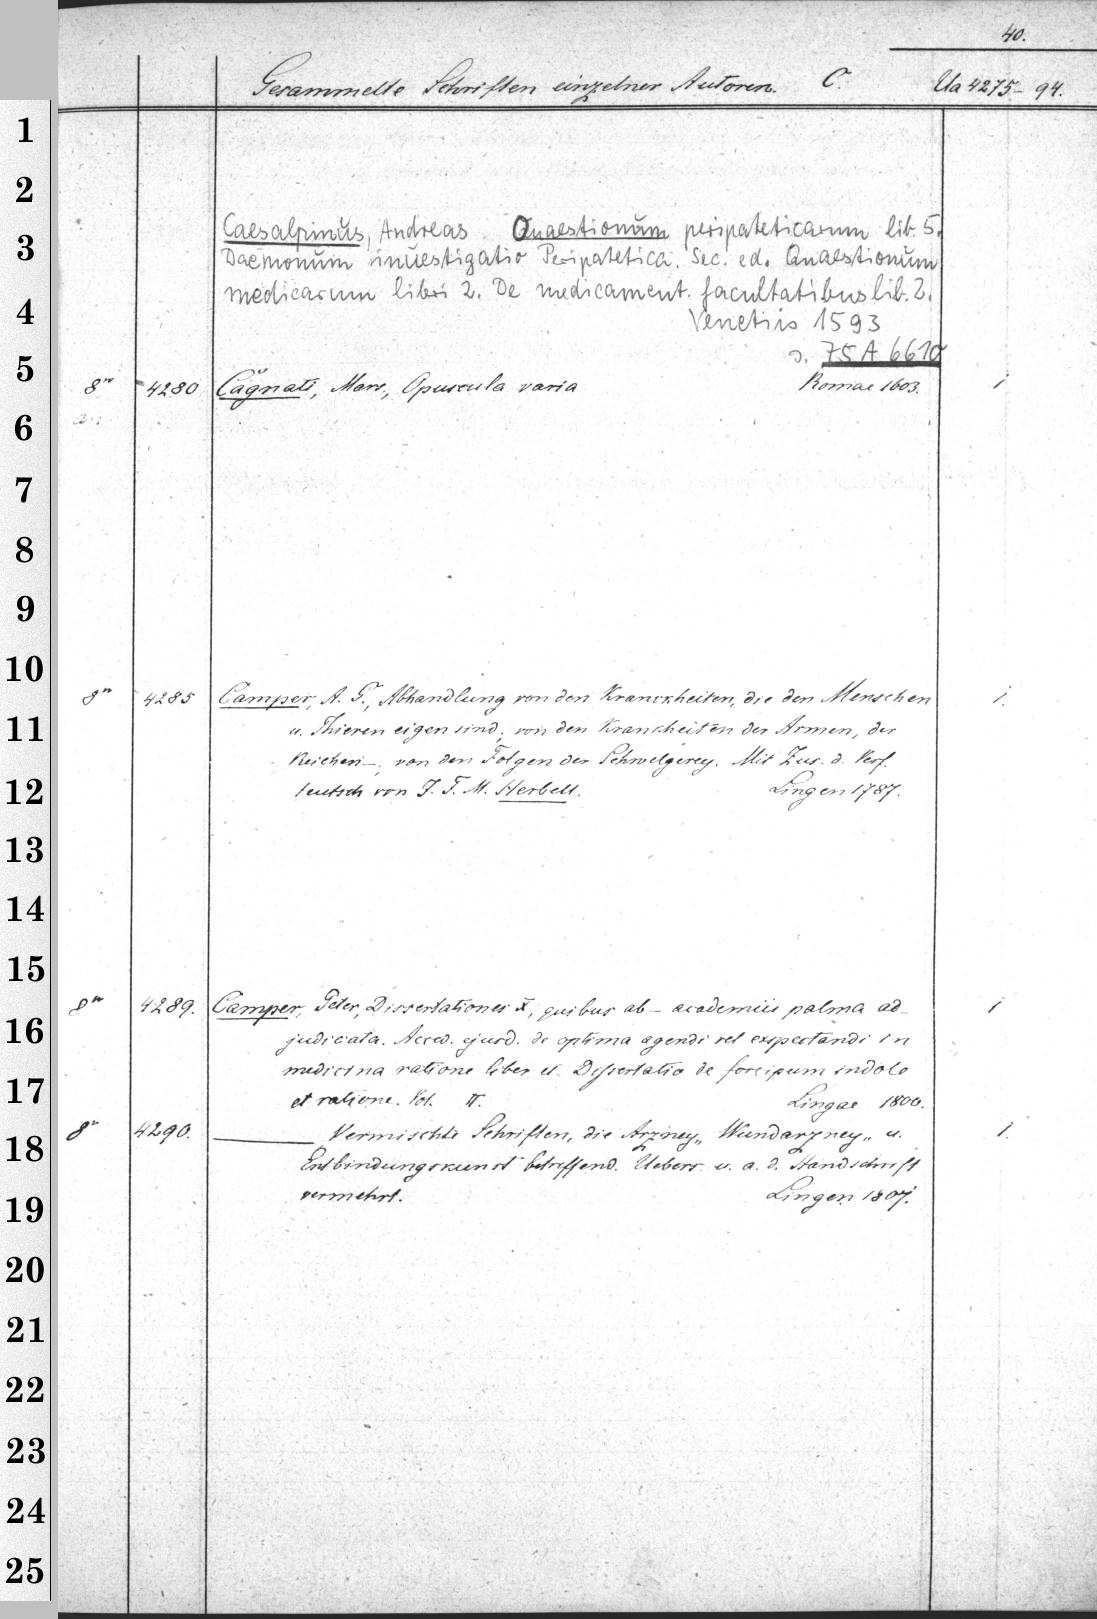 40.
Gesammelte Schriften einzelner Autoren. C. Ua 4275-94.
1
2
Caesalpinus, Andreas. Quaestionum peripateticarum lib. 5.
3
Daemonum inuestigatio Peripatetica. Sec. ed. Quaestionum
medicarum libri 2. De medicament. facultatibus lib. 2.
4
Venetiis 1593
s. 75 A 6610
5
8° 4280 Cagnati, Mars., Opuscula varia Romae 1603. 1
6
7
8
9
10
8° 4285 Camper, A. G., Abhandlung von den Kranckheiten, die den Menschen 1.
11
u. Thieren eigen sind, von den Krankheiten der Armen, der
Reichen -, von den Folgen der Schwelgerey. Mit Zus. d. Verf.
12
teutsch von J. F. M. Herbell. Lingen 1787.
13
14
15
8° 4289. Camper, Peter, Dissertationes X, quibus ab - academiis palma ad- 1
16
judicata. Acced. ejusd. de optima agendi vel exspectandi in
medicina ratione liber et Dissertatio de forcipum indole
17
et ratione. Vol. II. Lingae 1800.
8° 4290. ——— Vermischte Schriften, die Arzney-, Wundarzney-, u. 1.
18
Entbindungskunst betreffend. Uebers. u. a. d. Handschrift
19
vermehrt. Lingen 1801.
20
21
22
23
24
25